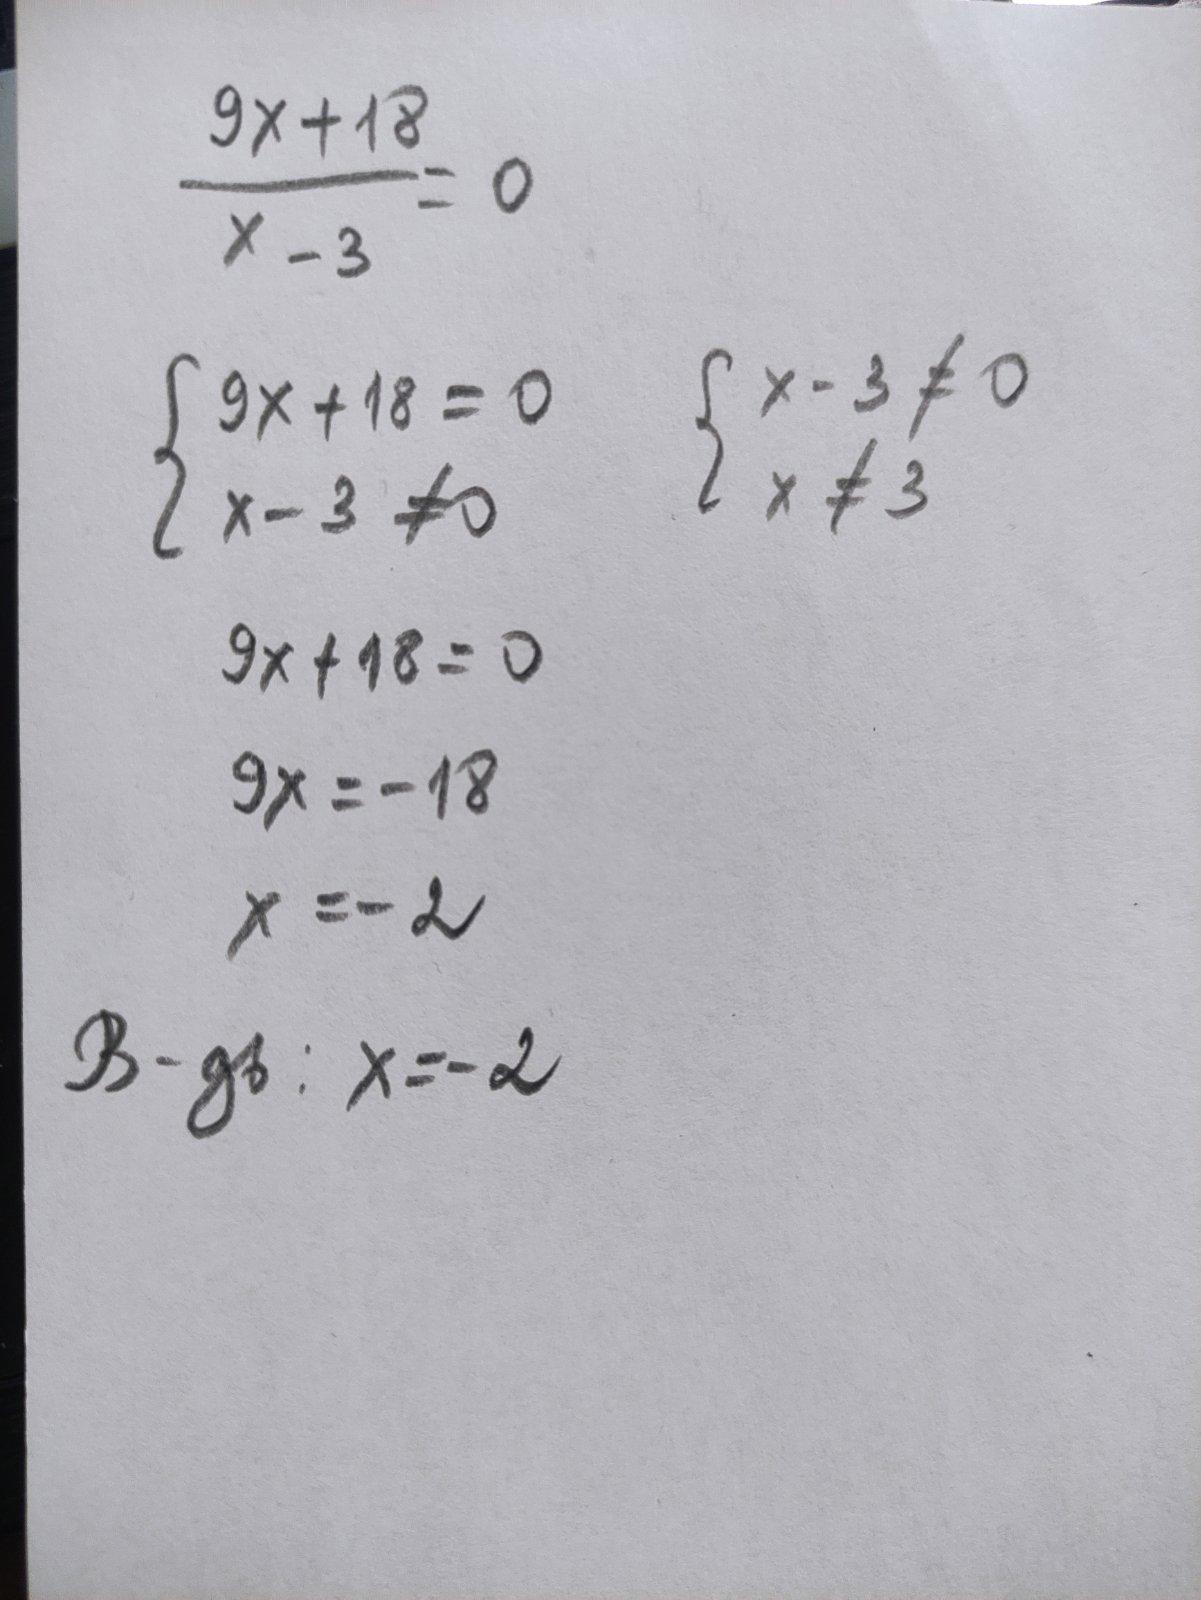 9x+18
x-3 = 0
{ 9x+18=0
x-3 ≠0
{ x-3≠0
x≠3
9x+18=0
9x=-18
x=-2
В-дь: x=-2